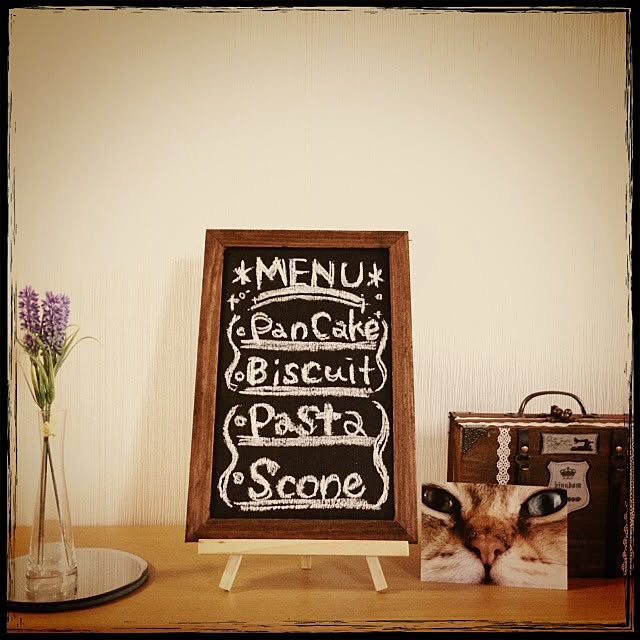 *MENU*
PanCake
Biscuit
Pasta
Scone
kingdom